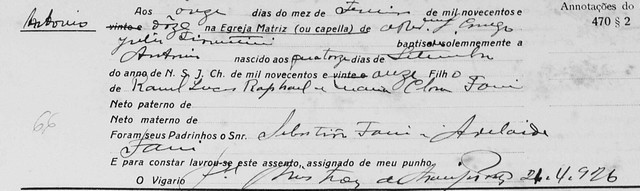 Aos onze dias do mez de Janeiro de mil novecentos e Annotações do
Antonio vinte e dôze na Egreja Matriz (ou capella) de 470 § 2
baptisei solemnemente a
Antonio nascido aos quatorze dias de Setembro
do anno de N. S. J. Ch. de mil novecentos e vinte e onze Filho
de Raul Lucas Raphael e Maria Clara Fani
Neto paterno de
66 Neto materno de
Foram seus Padrinhos o Snr. Sebastião Fani e Adelaide
Fani
E para constar lavrou-se este assento, assignado de meu punho.
O Vigario 21.4.926